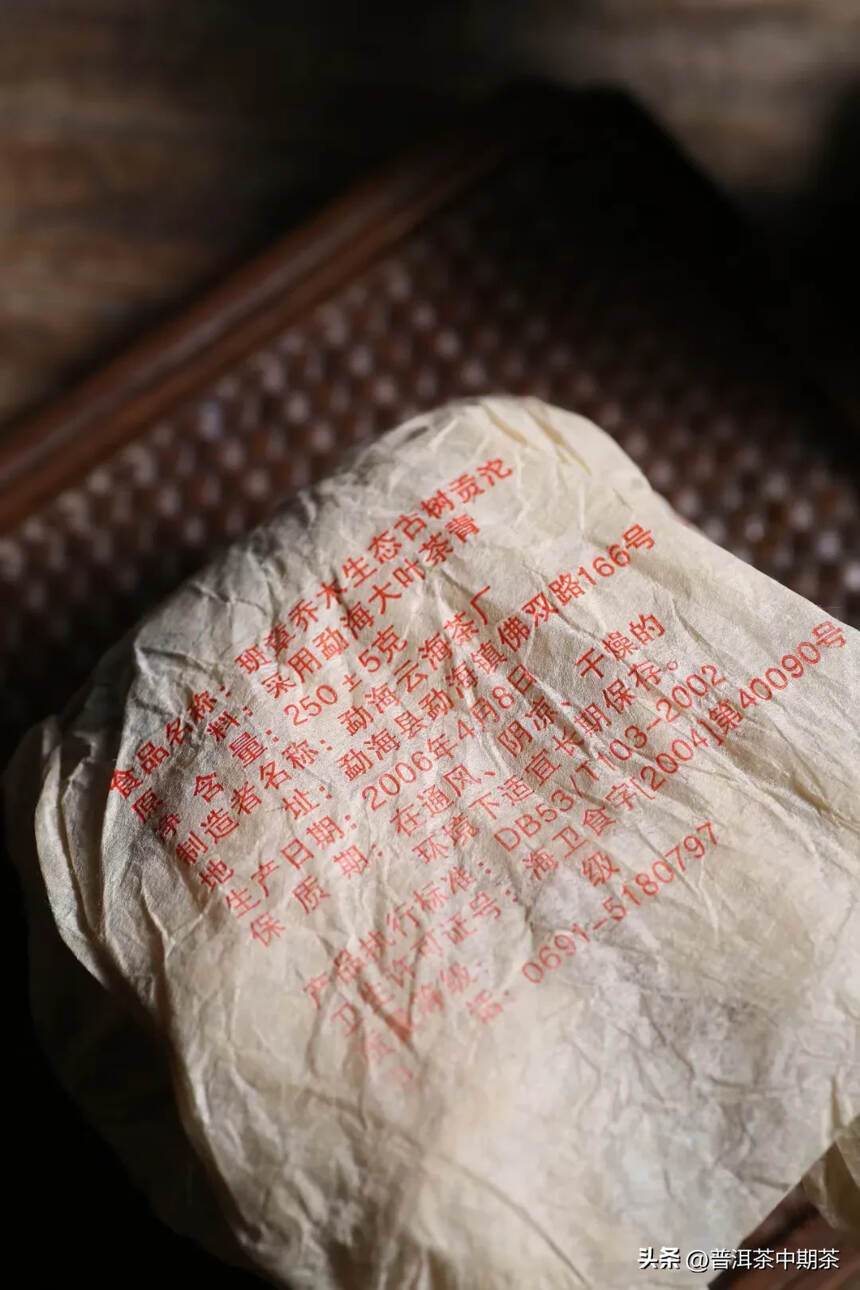 食品名称：班章乔木生态古树贡沱
原料：采用勐海大叶茶青
净含量：250±5克
制造者名称：勐海云海茶厂
地址：勐海县勐海镇佛双路166号
生产日期：2006年4月8日
保质期：在通风、阴凉、干燥的
环境下适宜长期保存。
产品执行标准：DB53/T103-2002
卫生许可证号：海卫食字[2004]第40090号
质量等级：级
话：0691-5180797
头条 @普洱茶中期茶